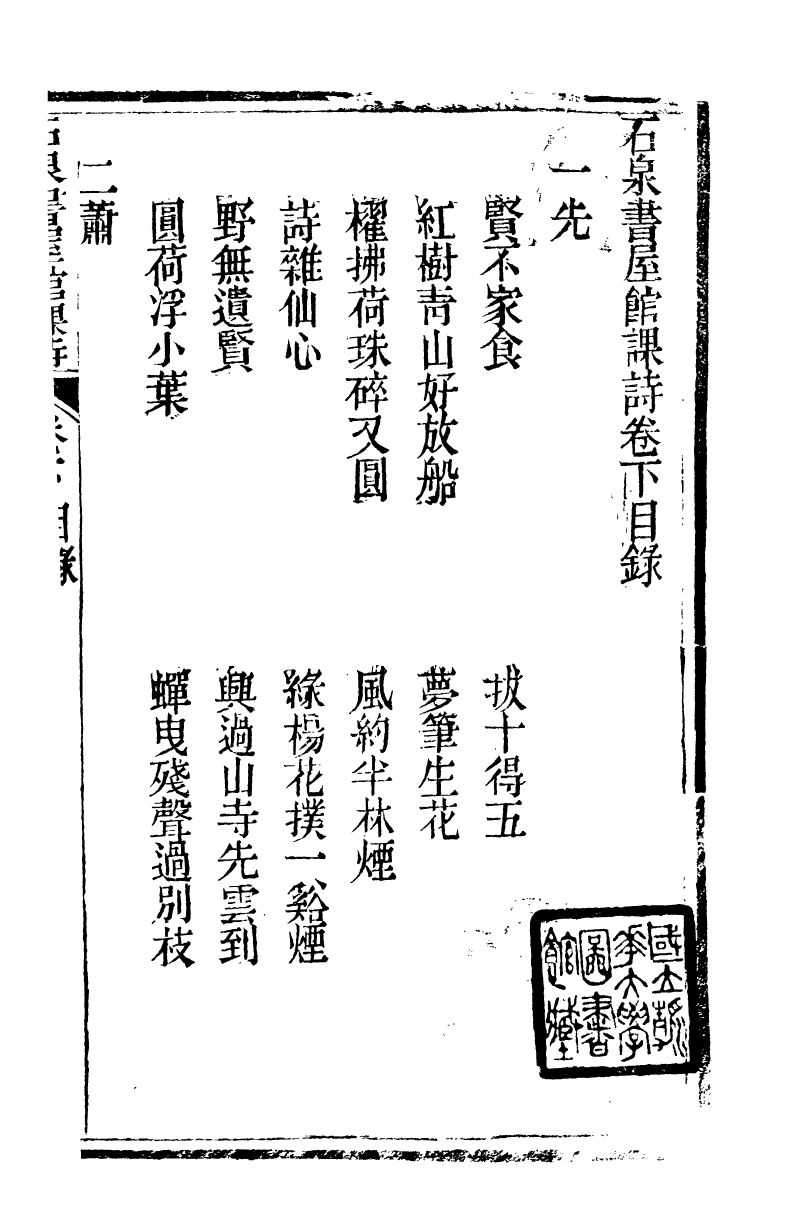 石泉書屋館課詩卷下目錄
一先
賢不家食
拔十得五
紅樹青山好放船
夢筆生花
櫂拂荷珠碎又圓
風約半林煙
詩雜仙心
綠楊花撲一谿煙
野無遺賢
興過山寺先雲到
圓荷浮小葉
蟬曳殘聲過別枝
二蕭
石泉書屋館課詩 卷下 目錄
國立清華大學圖書館藏